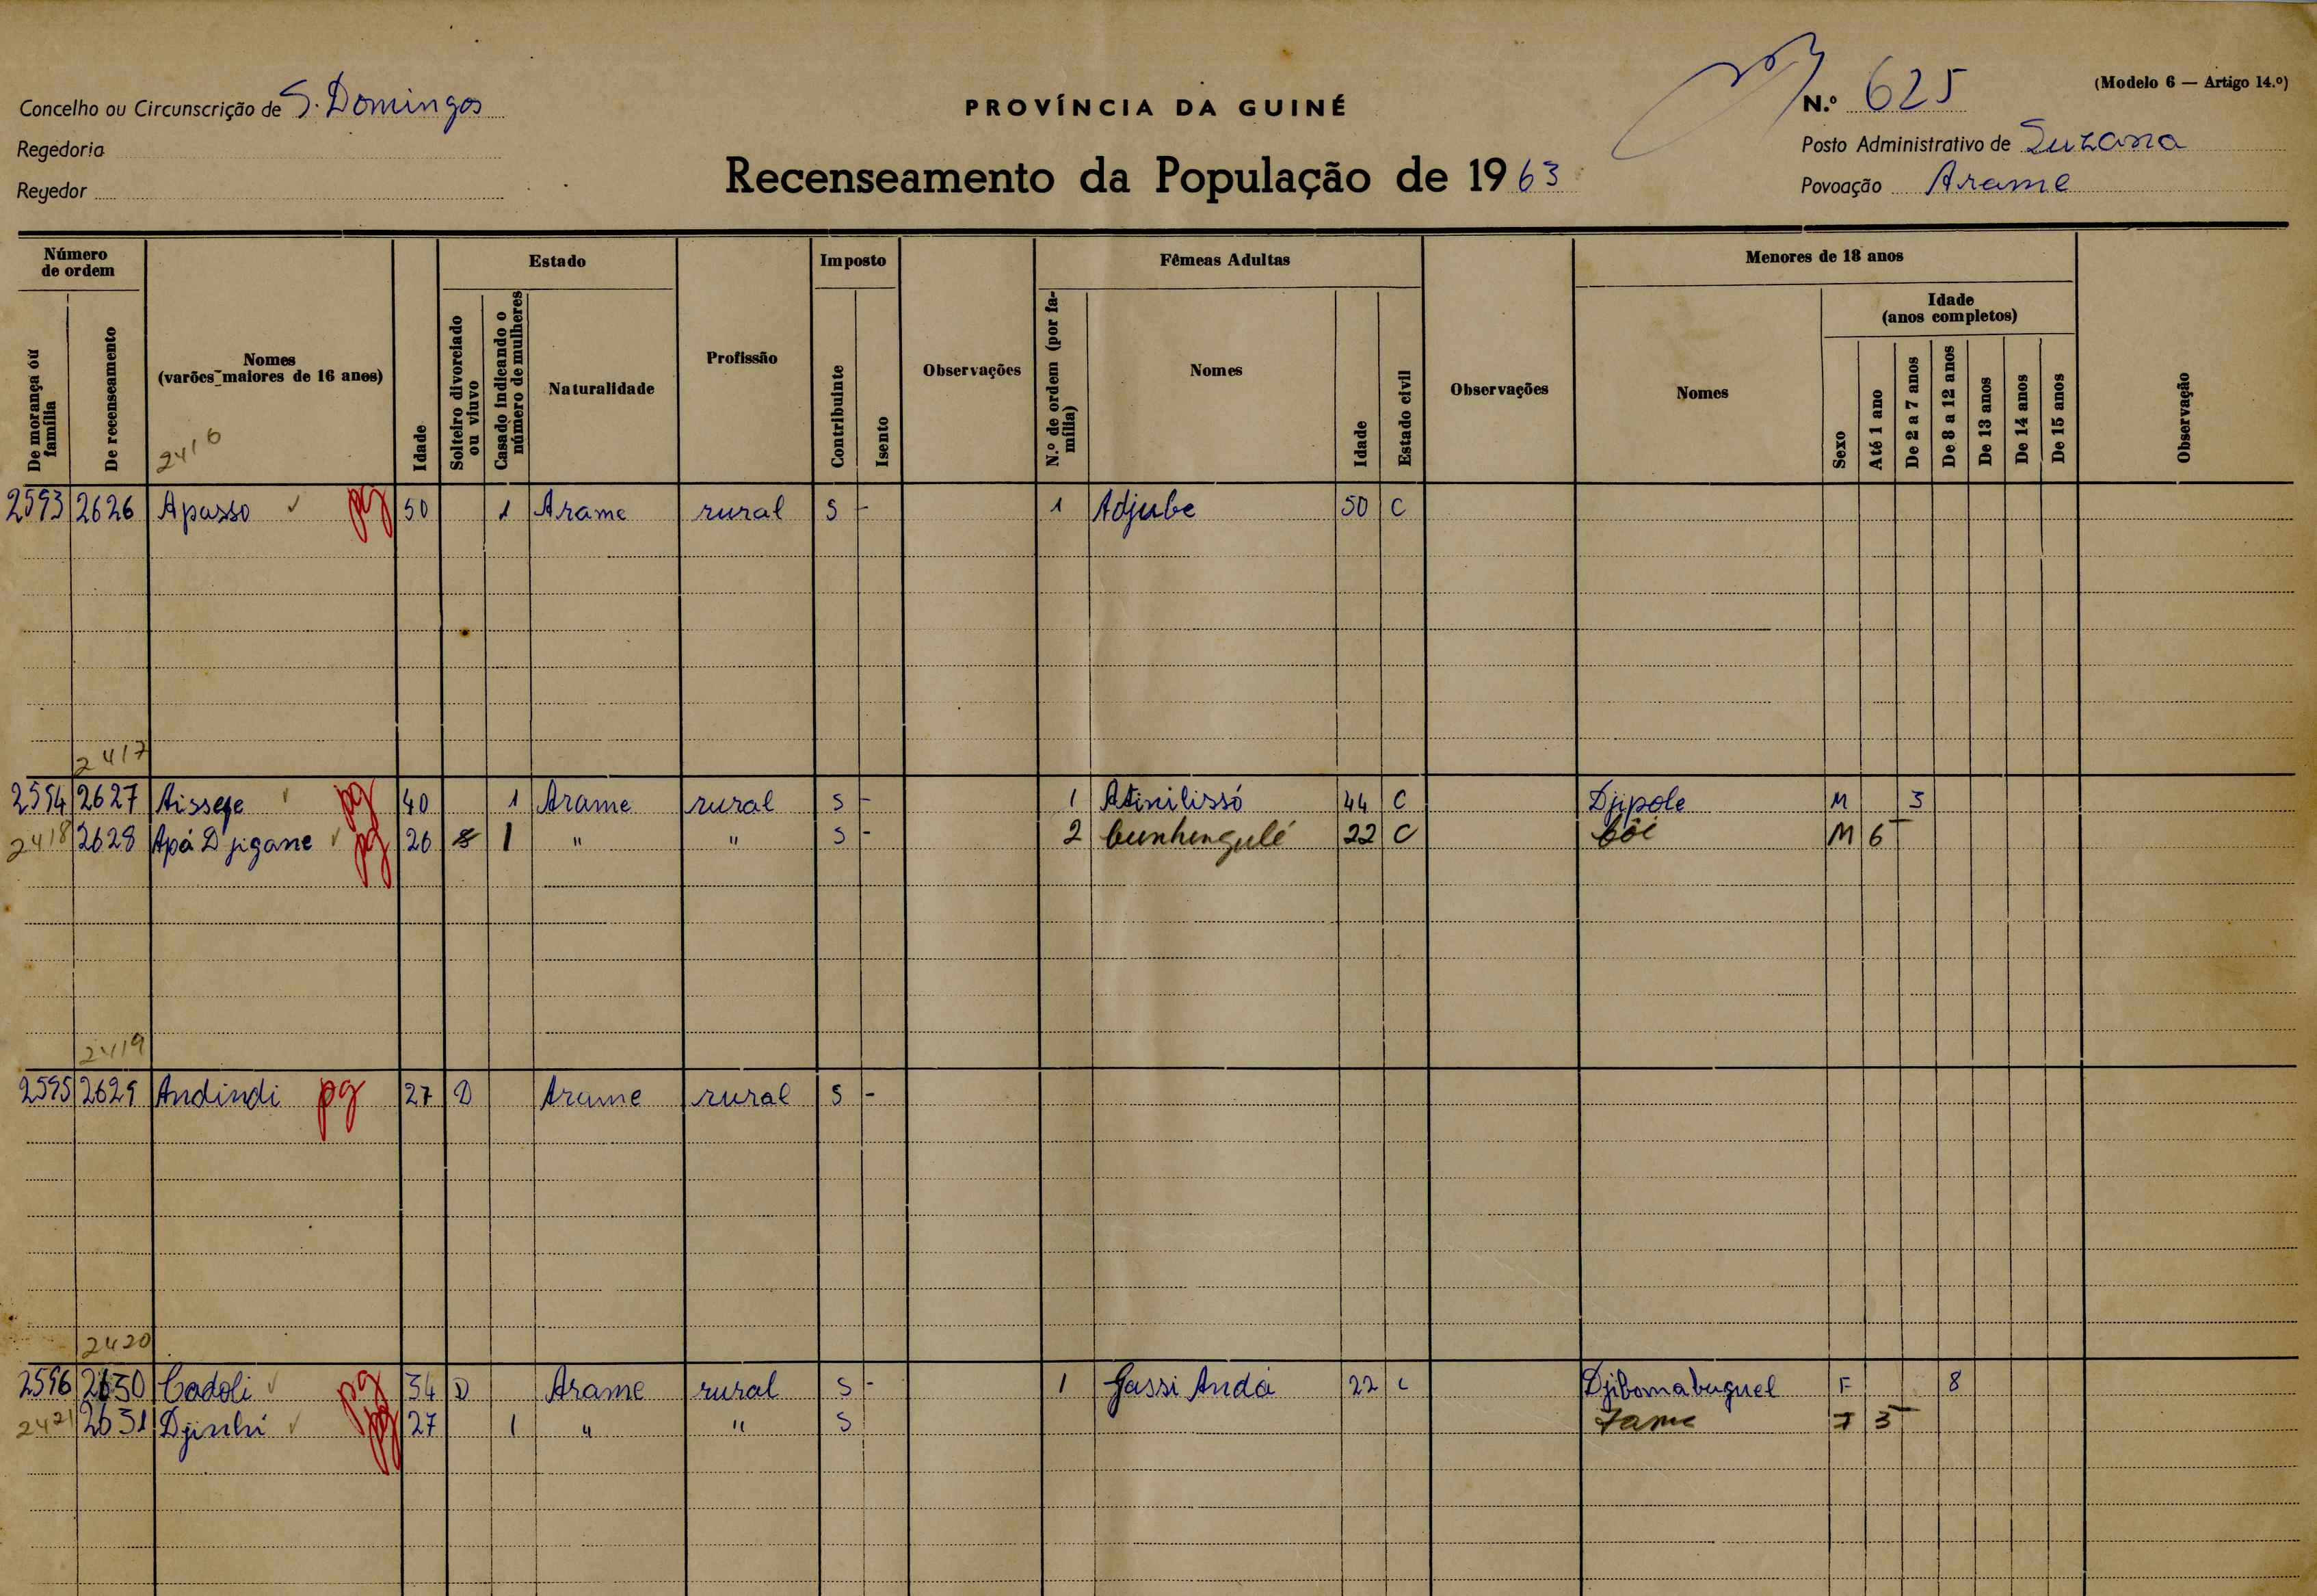 Concelho ou Circunscrição de S. Domingos
Regedoria
Regedor
PROVÍNCIA DA GUINÉ
Recenseamento da População de 1963
(Modelo 6 — Artigo 14.º)
N.º 625
Posto Administrativo de Suzana
Povoação Arame
Número de ordem
De morança ou família
De recenseamento
Nomes
(varões maiores de 16 anos)
2416
Idade
Estado
Solteiro divorciado ou viuvo
Casado indicando o número de mulheres
Naturalidade
Profissão
Imposto
Contribuinte
Isento
Observações
Fêmeas Adultas
N.º de ordem (por família)
Nomes
Idade
Estado civil
Observações
Menores de 18 anos
Nomes
Sexo
Idade
(anos completos)
Até 1 ano
De 2 a 7 anos
De 8 a 12 anos
De 13 anos
De 14 anos
De 15 anos
Observação
2593 2626 Apasso pg 50 1 Arame rural S - 1 Adjube 50 C
2417
2594 2627 Aissefe pg 40 1 Arame rural S - 1 Atinilissó 44 C Djipole M 3
2418 2628 Apá Djigane pg 26 S 1 " " S - 2 Cunhengulé 22 C Côi M 6
2419
2595 2629 Andindi pg 27 D Arame rural S -
2420
2596 2630 Cadoli pg 34 D Arame rural S - 1 Gassi Andá 22 C Djibomabuguel F 8
2421 2631 Djinhi pg 27 1 " " S Fame F 3